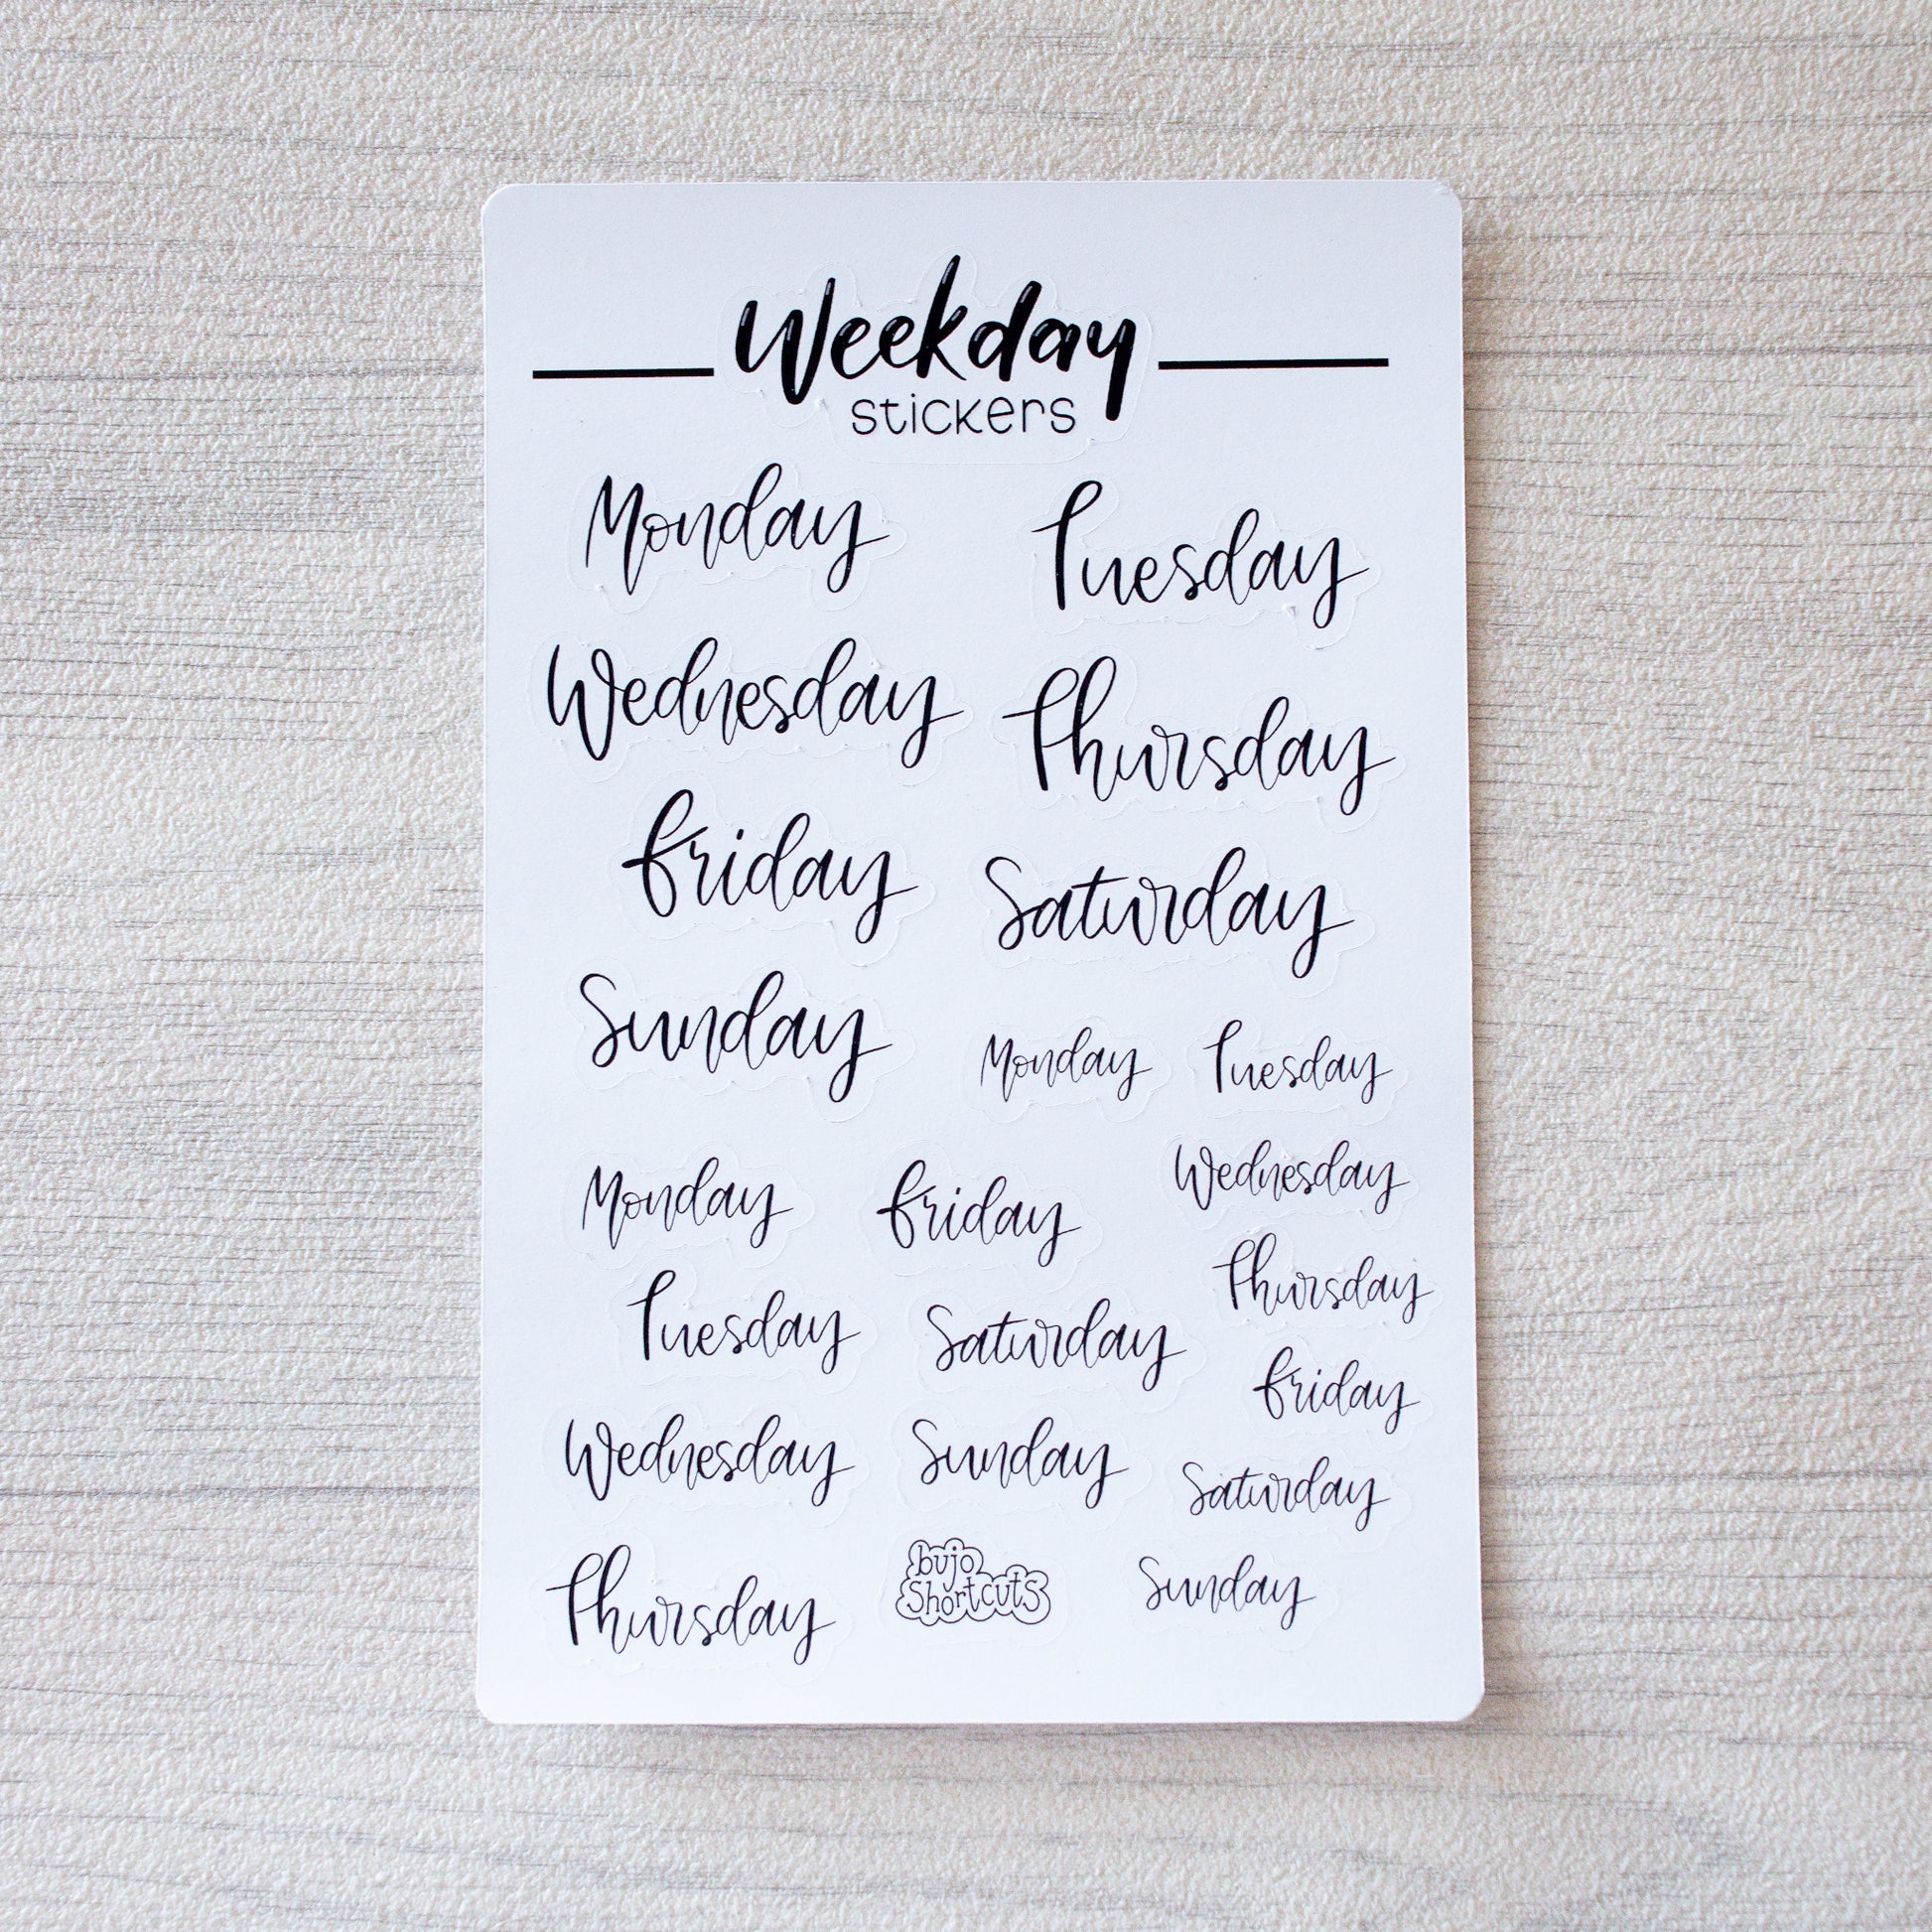 Weekday
stickers
Monday
Tuesday
Wednesday
Thursday
friday
Saturday
Sunday
Monday
Tuesday
Monday
friday
Wednesday
Thursday
Tuesday
Saturday
friday
Wednesday
Sunday
Saturday
Thursday
bujo
Shortcuts
Sunday